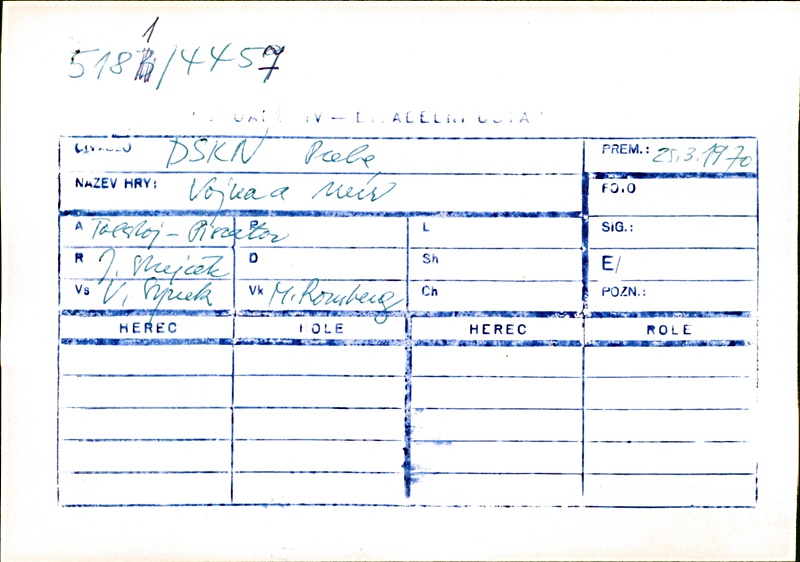 5181/4457
DIVADLO DSKN Praha PREM.: 25.3.1970
NÁZEV HRY: Vojna a mír FOTO
A Tolstoj – Piscator P L SIG.:
R J. D Sh E/
Vs V. Vk M. Romberg Ch POZN.:
HEREC ROLE HEREC ROLE